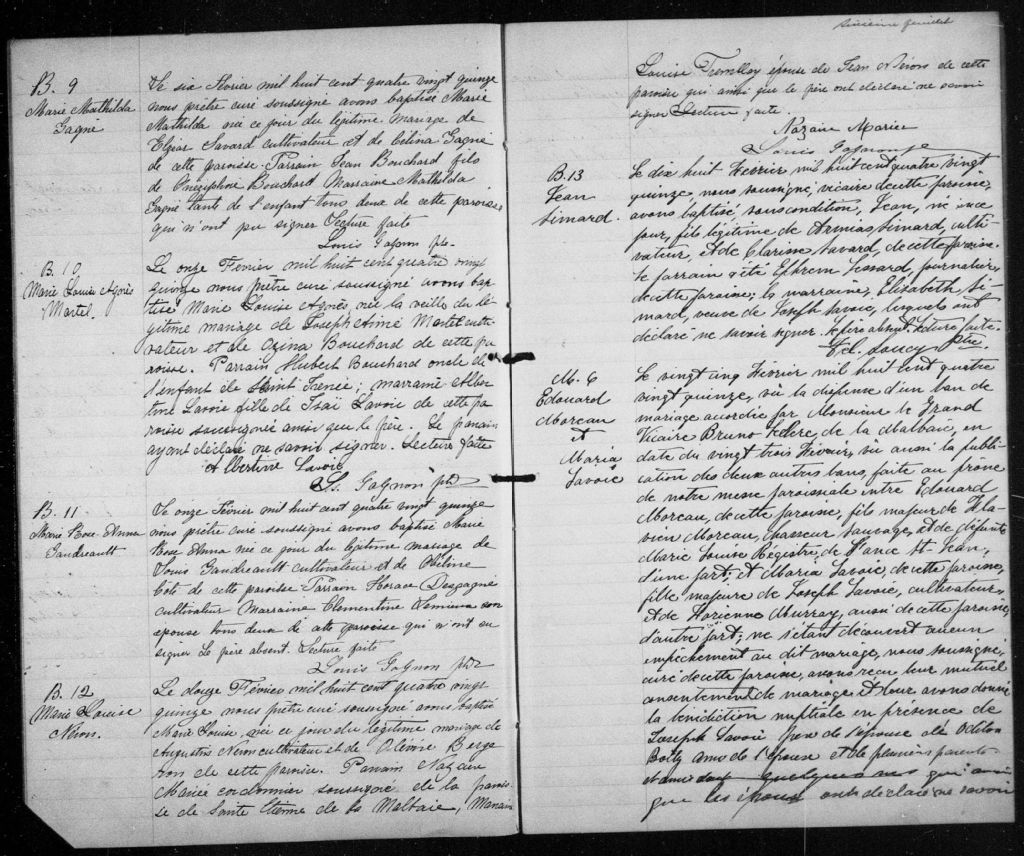 B. 9
Marie Mathilda
Gagné
Le six Février mil huit cent quatre vingt quinze
nous prêtre curé soussigné avons baptisé Marie
Mathilda née ce jour du légitime mariage de
Elzéar Savard cultivateur et de Célina Gagné
de cette paroisse. Parrain Jean Bouchard fils
de Onéziphore Bouchard Marraine Mathilda
Gagné tante de l'enfant tous deux de cette paroisse
qui n'ont pu signer Lecture faite
Louis Gagnon ptr
B. 10
Marie Louise Agnès
Martel.
Le onze Février mil huit cent quatre vingt
quinze nous prêtre curé soussigné avons bap
tisé Marie Louise Agnès née la veille du lé
gitime mariage de Joseph Aimé Martel culti
vateur et de Ozina Bouchard de cette pa
roisse. Parrain Hubert Bouchard oncle de
l'enfant de Saint Irenée; marraine Alber
tine Savoie fille de Isaï Savoie de cette pa
roisse soussignée ainsi que le père. Le parrain
ayant déclaré ne savoir signer. Lecture faite
Albertine Savoie
L. Gagnon ptr
B. 11
Marie Rose-Anna
Gaudreault
Le onze Février mil huit cent quatre vingt quinze
nous prêtre curé soussigné avons baptisé Marie
Rose Anna née ce jour du légitime mariage de
Louis Gaudreault cultivateur et de
Coté de cette paroisse Parrain Horace Despagné
cultivateur Marraine Clementine Lemieux son
epouse tous deux de cette paroisse qui n'ont su
signer Le père absent. Lecture faite
Louis Gagnon ptr
B. 12
Marie Louise
Néron.
Le douze Février mil huit cent quatre vingt
quinze nous prêtre curé soussigné avons baptisé
Marie Louise, née ce jour du légitime mariage de
Augustin Néron cultivateur et de Olévine Berge
ron de cette paroisse. Parrain Nazaire
Marier cordonnier soussigné de la parois
se de Sainte Etienne de la Malbaie, Marraine
Sixième feuillet
Louise Tremblay épouse de Jean Néron de cette
paroisse qui ainsi que le père ont déclaré ne savoir
signer Lecture faite.
Nazaire Marier
Louis Gagnon ptr
B. 13
Jean
Simard.
Le dix huit Février mil huit cent quatre vingt
quinze, nous soussigné, vicaire de cette paroisse,
avons baptisé, sous condition, Jean, né ce
jour, fils légitime de Armias Simard, culti-
vateur, et de Clarisse Savard, de cette paroisse.
Le parrain a été Ephrem Lessard, journalier,
de cette paroisse; la marraine, Elizabeth Si-
mard, veuve de Joseph Savoie, lesquels ont
déclaré ne savoir signer. Le père absent. Lecture faite.
Ed. Saucy ptre
M. 6
Edouard
Moreau
et
Maria
Savoie
Le vingt cinq Février mil huit cent quatre
vingt quinze, vû la dispense d'un ban de
mariage accordée par Monsieur le Grand
Vicaire Bruno Leclerc, de la Malbaie, en
date du vingt trois Février, vû aussi la publi-
cation des deux autres bans, faite au prône
de notre messe paroissiale entre Edouard
Moreau, de cette paroisse, fils majeur de Fla-
vien Moreau, chasseur sauvage, et de défunte
Marie Louise Registre, de l'Ance St-Jean,
d'une part; et Maria Savoie, de cette paroisse,
fille majeure de Joseph Savoie, cultivateur,
et de Marienne Murray, aussi de cette paroisse,
d'autre part; ne s'étant découvert aucun
empêchement au dit mariage, nous soussigné,
curé de cette paroisse, avons reçu leur mutuel
consentement de mariage et leur avons donné
la bénédiction nuptiale en présence de
Joseph Savoie père de l'épouse de Odilon
Boily ami de l'épouse et de plusieurs parents
et amis dont quelques uns qui ainsi
que les époux ont déclaré ne savoir